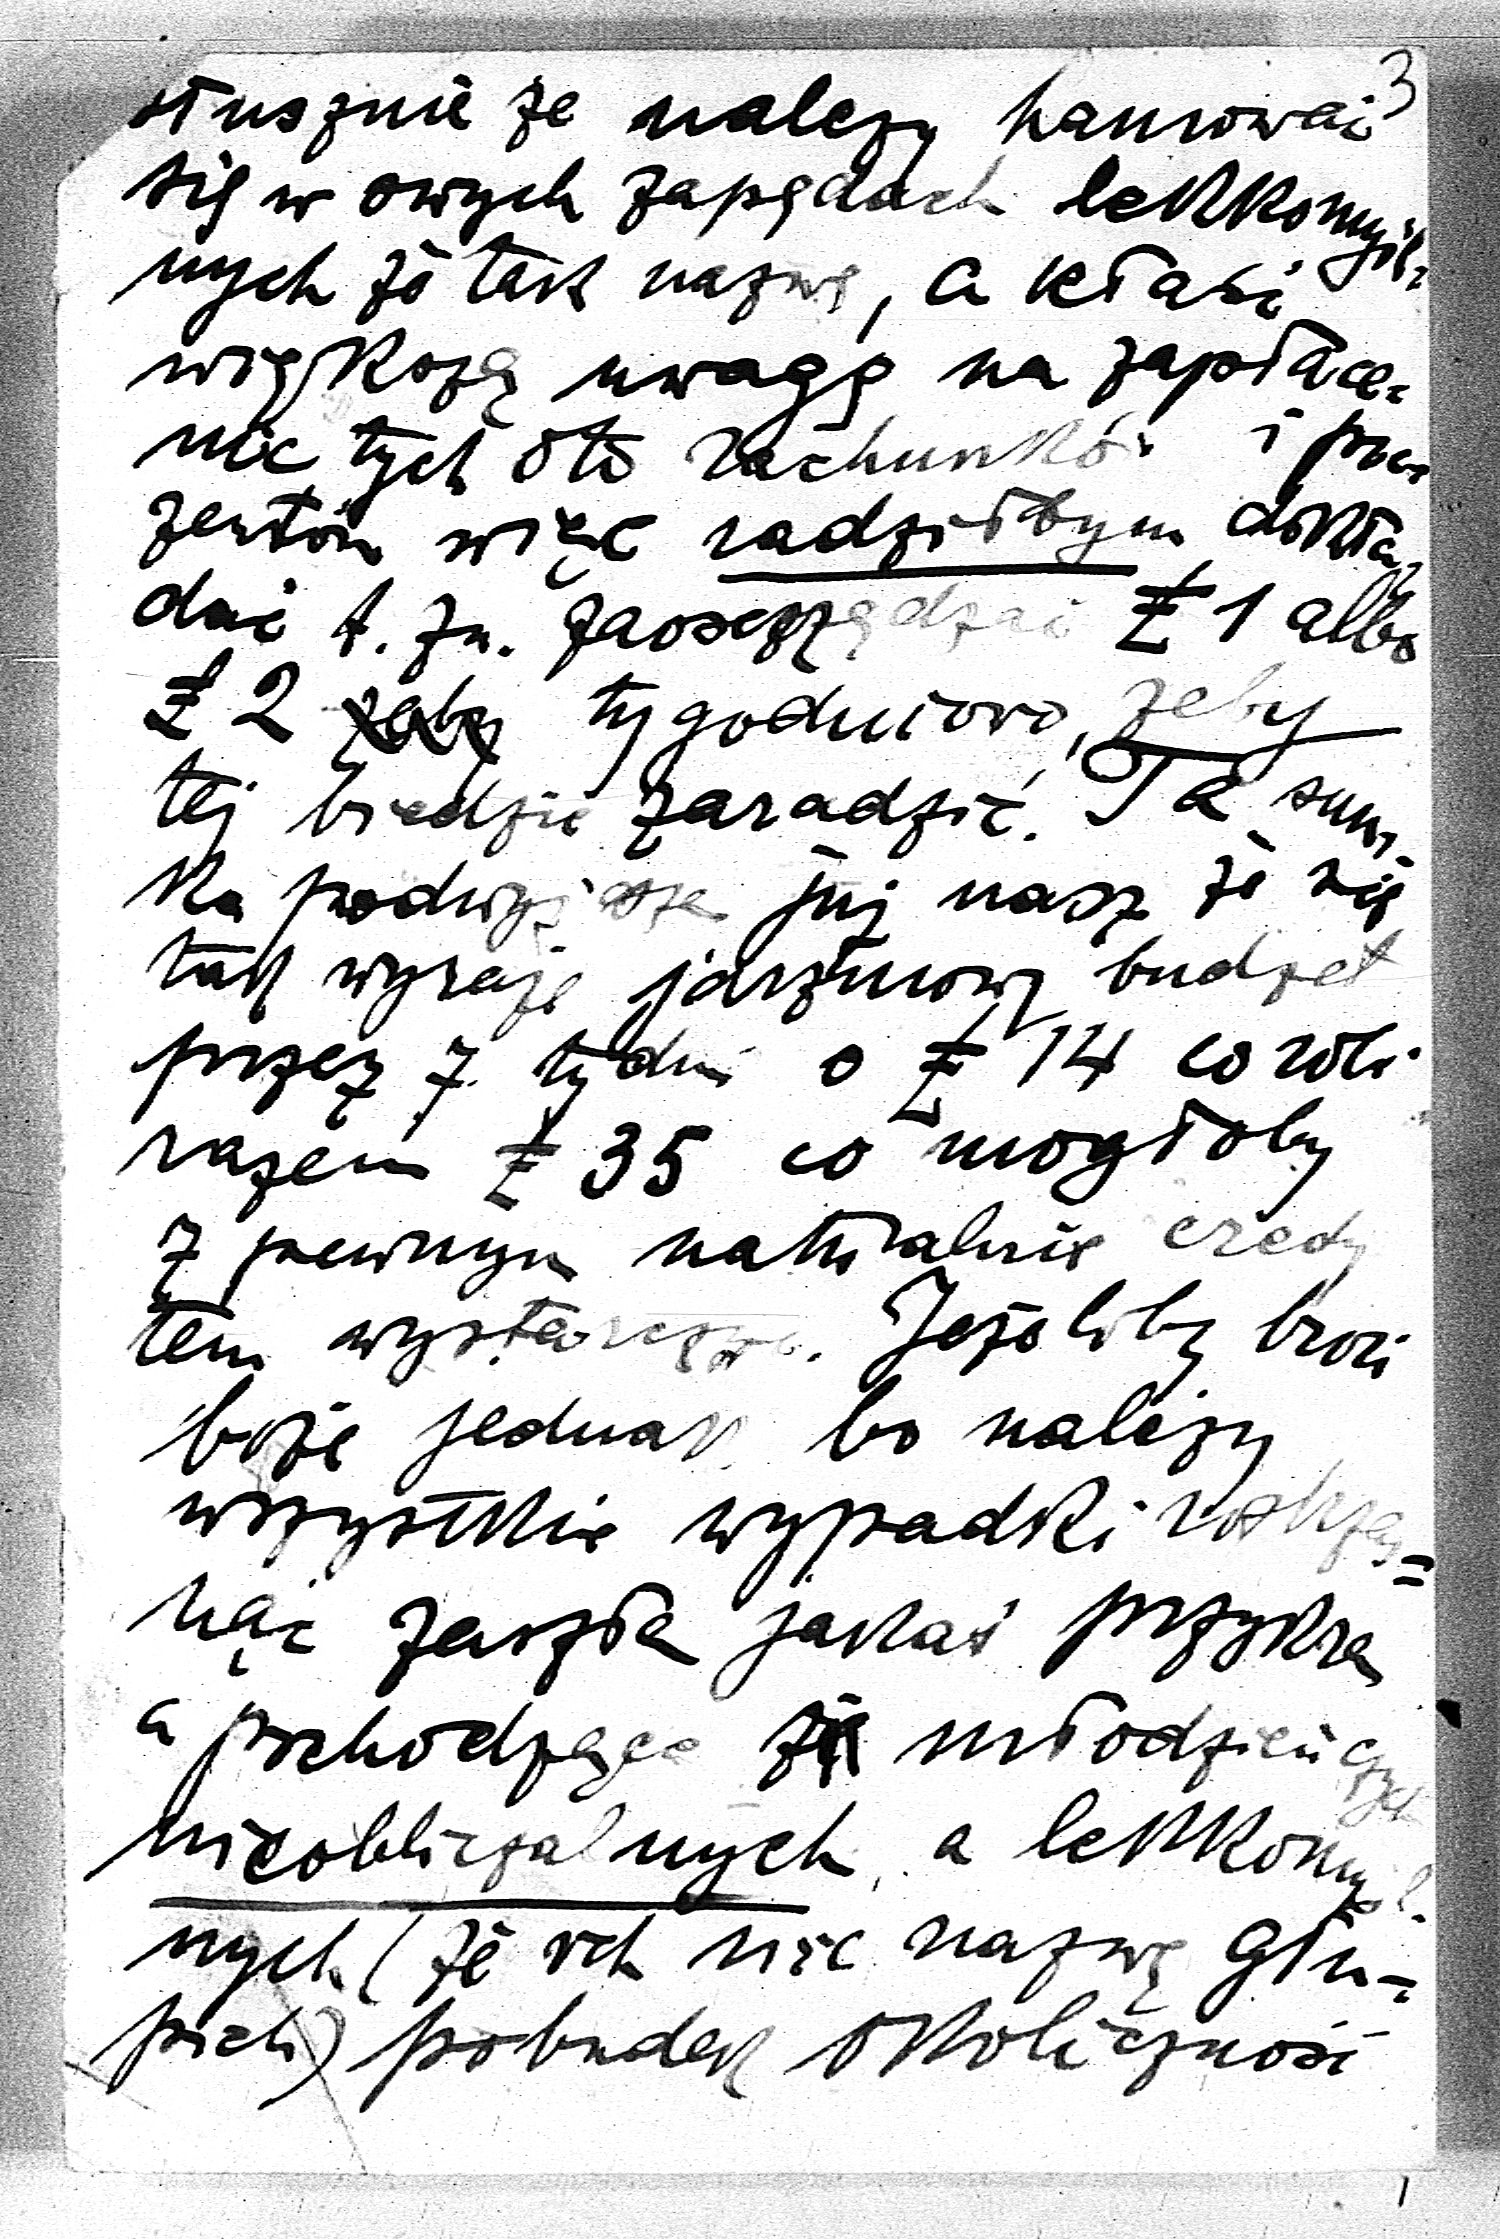 3
słusznie że należy hamować
się w owych zapędach lekkomyśl-
nych że tak nazwę, a kłaść
większą uwagę na zapłace-
nie tych oto rachunków i pre-
zentów więc radziłbym dokła-
dać t. zn. zaoszczędzać £ 1 albo
£ 2 żeby tygodniowo, żeby
tej biedzie zaradzić. Ta sum-
ka podwyższa już nasz że się
tak wyrażę jarzmowy budżet
przez 7 tydni o £ 14 co robi
razem £ 35 co mogłoby
z pewnym naturalnie credy
tem wystarczyć. Jeżeliby broń
boże jednak bo należy
wszystkie wypadki
nąć zaszła jakaś przykra
a pochodząca ze młodzieńczych
nieobliczalnych, a lekkomyśl-
nych (że ich nie nazwę głu-
pich) pobudek okoliczność